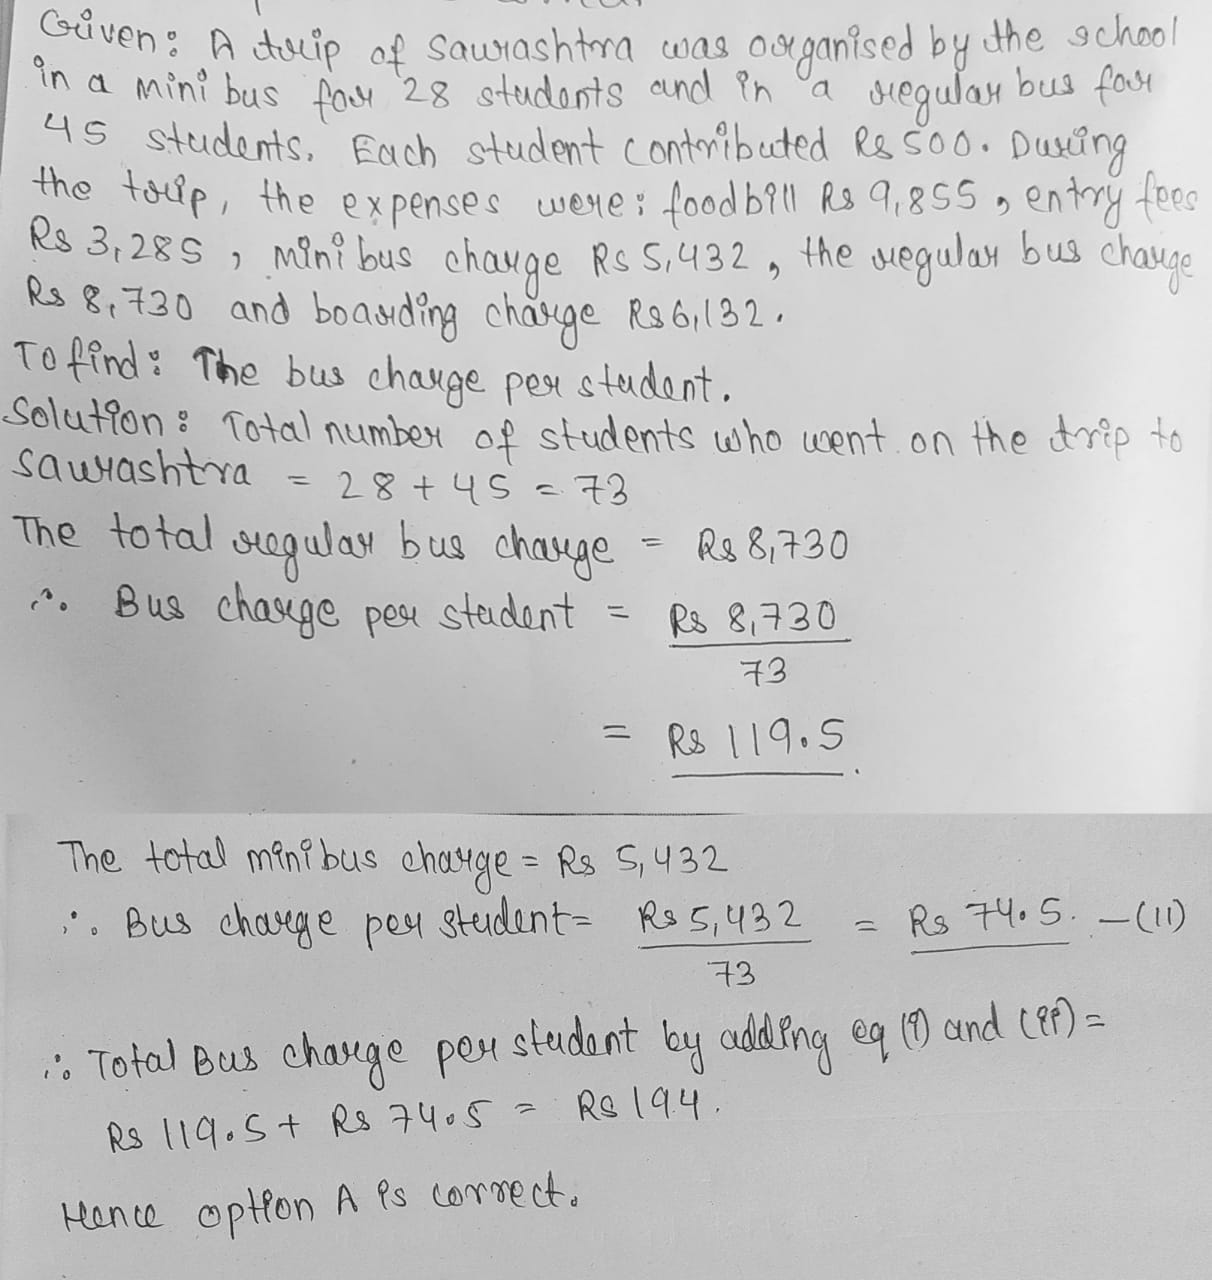 Given: A trip of Saurashtra was organised by the school
in a mini bus for 28 students and in a regular bus for
45 students. Each student contributed Rs 500. During
the trip, the expenses were: foodbill Rs 9,855, entry fees
Rs 3,285, mini bus charge Rs 5,432, the regular bus charge
Rs 8,730 and boarding charge Rs 6,132.
To find: The bus charge per student.
Solution: Total number of students who went on the trip to
Saurashtra = 28 + 45 = 73
The total regular bus charge = Rs 8,730
∴ Bus charge per student = Rs 8,730
73
= Rs 119.5.
The total minibus charge = Rs 5,432
∴ Bus charge per student = Rs 5,432 = Rs 74.5. –(11)
73
∴ Total Bus charge per student by adding eq (i) and (ii) =
Rs 119.5 + Rs 74.5 = Rs 194.
Hence option A is correct.